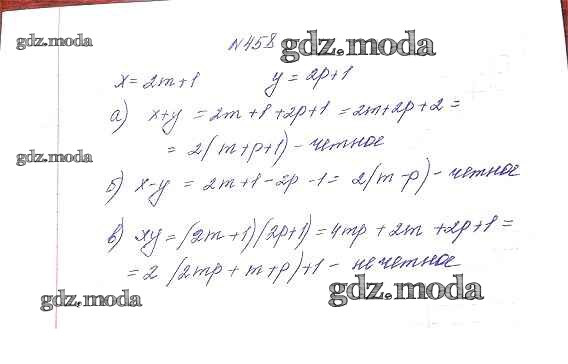 gdz.moda
№458 gdz.moda
x = 2m+1 y = 2p+1
а) x+y = 2m+1+2p+1 = 2m+2p+2 =
= 2(m+p+1) - четное
gdz.moda
б) x-y = 2m+1-2p-1 = 2(m-p) - четное
в) xy = (2m+1)(2p+1) = 4mp+2m+2p+1 =
= 2(2mp+m+p)+1 - нечетное
gdz.moda gdz.moda